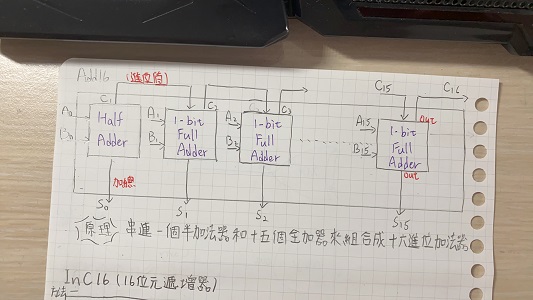 Add16 (進位的)
C1 C2 C3 C15 C16
A0 Half Adder
B0
A1 1-bit Full Adder
B1
A2 1-bit Full Adder
B2
A15 1-bit Full Adder
B15
out
out
加總
S0 S1 S2 S15
原理 串連一個半加法器和十五個全加器來組合成十六進位加法器
InC16 (16位元遞增器)